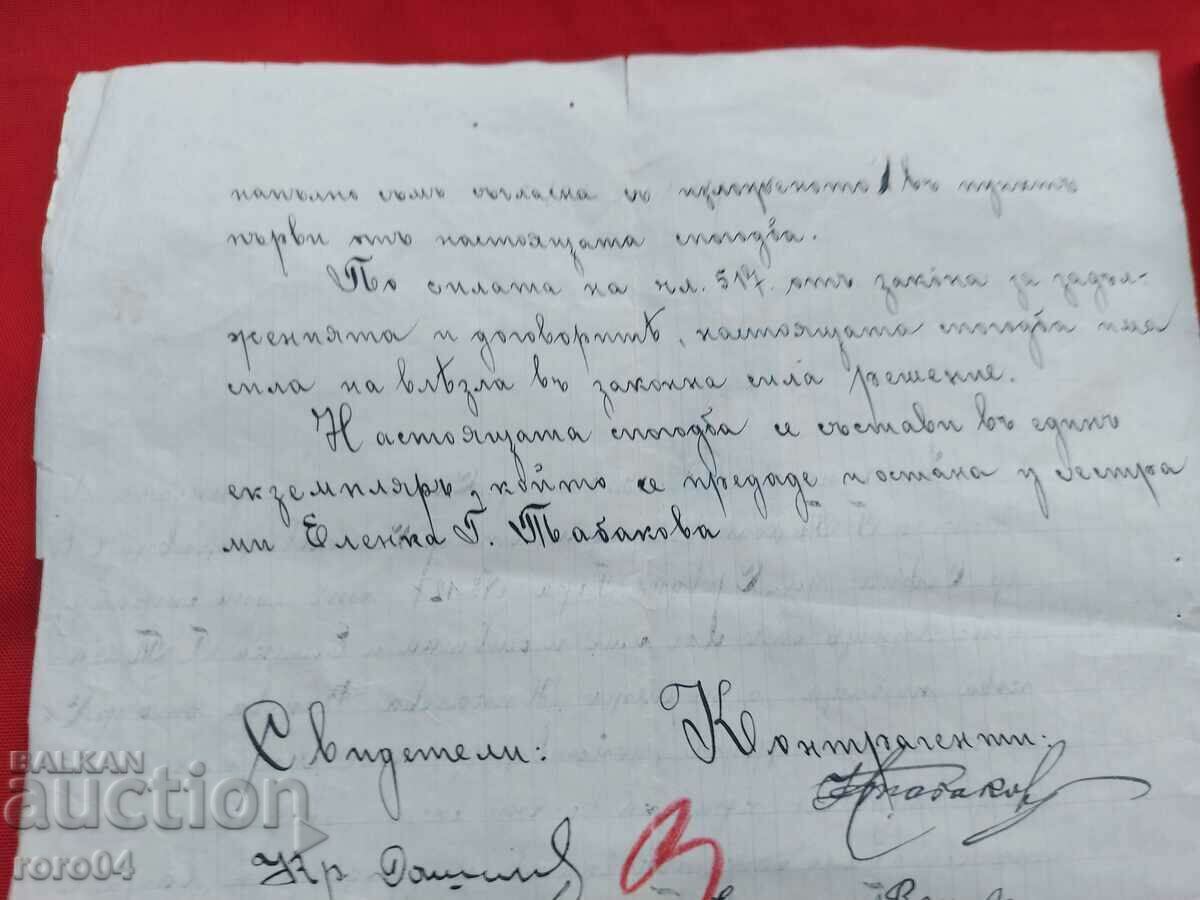 напълно съмъ съгласна съ изложеното въ пунктъ
първи отъ настоящата спогодба.
По силата на чл. 517. отъ закона за задъл-
женията и договоритѣ, настоящата спогодба има
сила на влѣзла въ законна сила решение.
Настоящата спогодба се състави въ единъ
екземпляръ, който се предаде и остана у сестра
ми Еленка Г. Табакова
Свидетели: Контрагенти:
Табаков
Кр.
BALKAN
auction
roro04